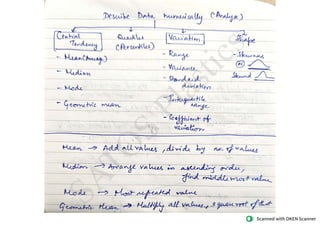 Describe Data numerically (Analyse)
Central Tendency
Quartiles (Percentiles)
Variation
Shape
- Mean (Average)
- Median
- Mode
- Geometric mean
- Range
- Variance
- Standard deviation
- Interquartile range
- Coefficient of variation
- Skewness
Mean → Add all values, divide by no. of values
Median → Arrange values in ascending order, find middlemost value
Mode → Most repeated value
Geometric Mean → Multiply all values, square root of that
Scanned with OKEN Scanner